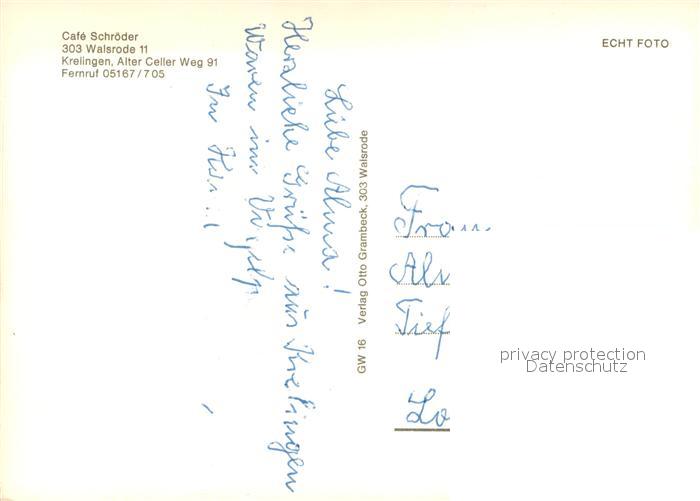 Café Schröder
303 Walsrode 11
Krelingen, Alter Celler Weg 91
Fernruf 05167/705
ECHT FOTO
Liebe Alma!
Herzliche Grüße aus Krelingen
Waren im
In
GW 16 Verlag Otto Grambeck, 303 Walsrode
Tief
Lo
privacy protection
Datenschutz